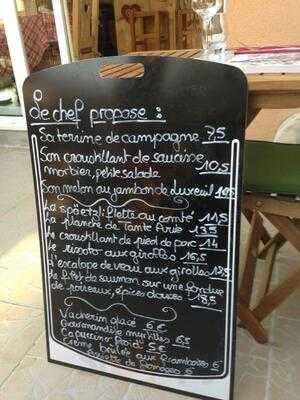 Le chef propose :
Sa terrine de campagne 7,5
Son croustillant de saucisse
morbier, petite salade 10,5
Son melon au jambon de luxeuil 10,5
La spöetzliflette au comté 11,5
La planche de Tante Arie 13,5
Le croustillant de pied de porc 14
Le risoto aux girolles 16,5
L'escalope de veau aux girolles 17,5
Le filet de saumon sur une fondue
de poireaux, épices douces 18,5
Vacherin glacé 6€
Gourmandise myrtilles 6,5
Capuccino froid 5€
Crème brulée aux framboises 6
Assiette de fromages 6